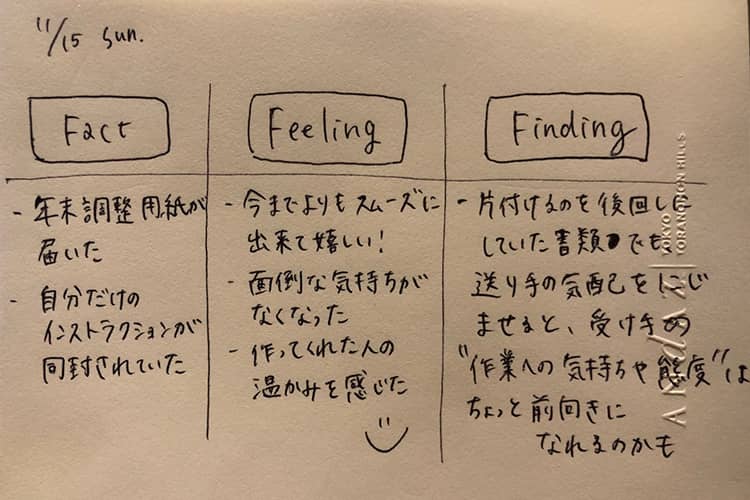 11/15 Sun.
Fact
- 年末調整用紙が
届いた
- 自分だけの
インストラクションが
同封されていた
Feeling
- 今までよりもスムーズに
出来て嬉しい!
- 面倒な気持ちが
なくなった
- 作ってくれた人の
温かみを感じた
Finding
- 片付けるのを後回しに
していた書類でも
送り手の気配をにじ
ませると、受け手の
"作業への気持ちや態度"は
ちょっと前向きに
なれるのかも
ANDAZ
TOKYO
TORANOMON HILLS